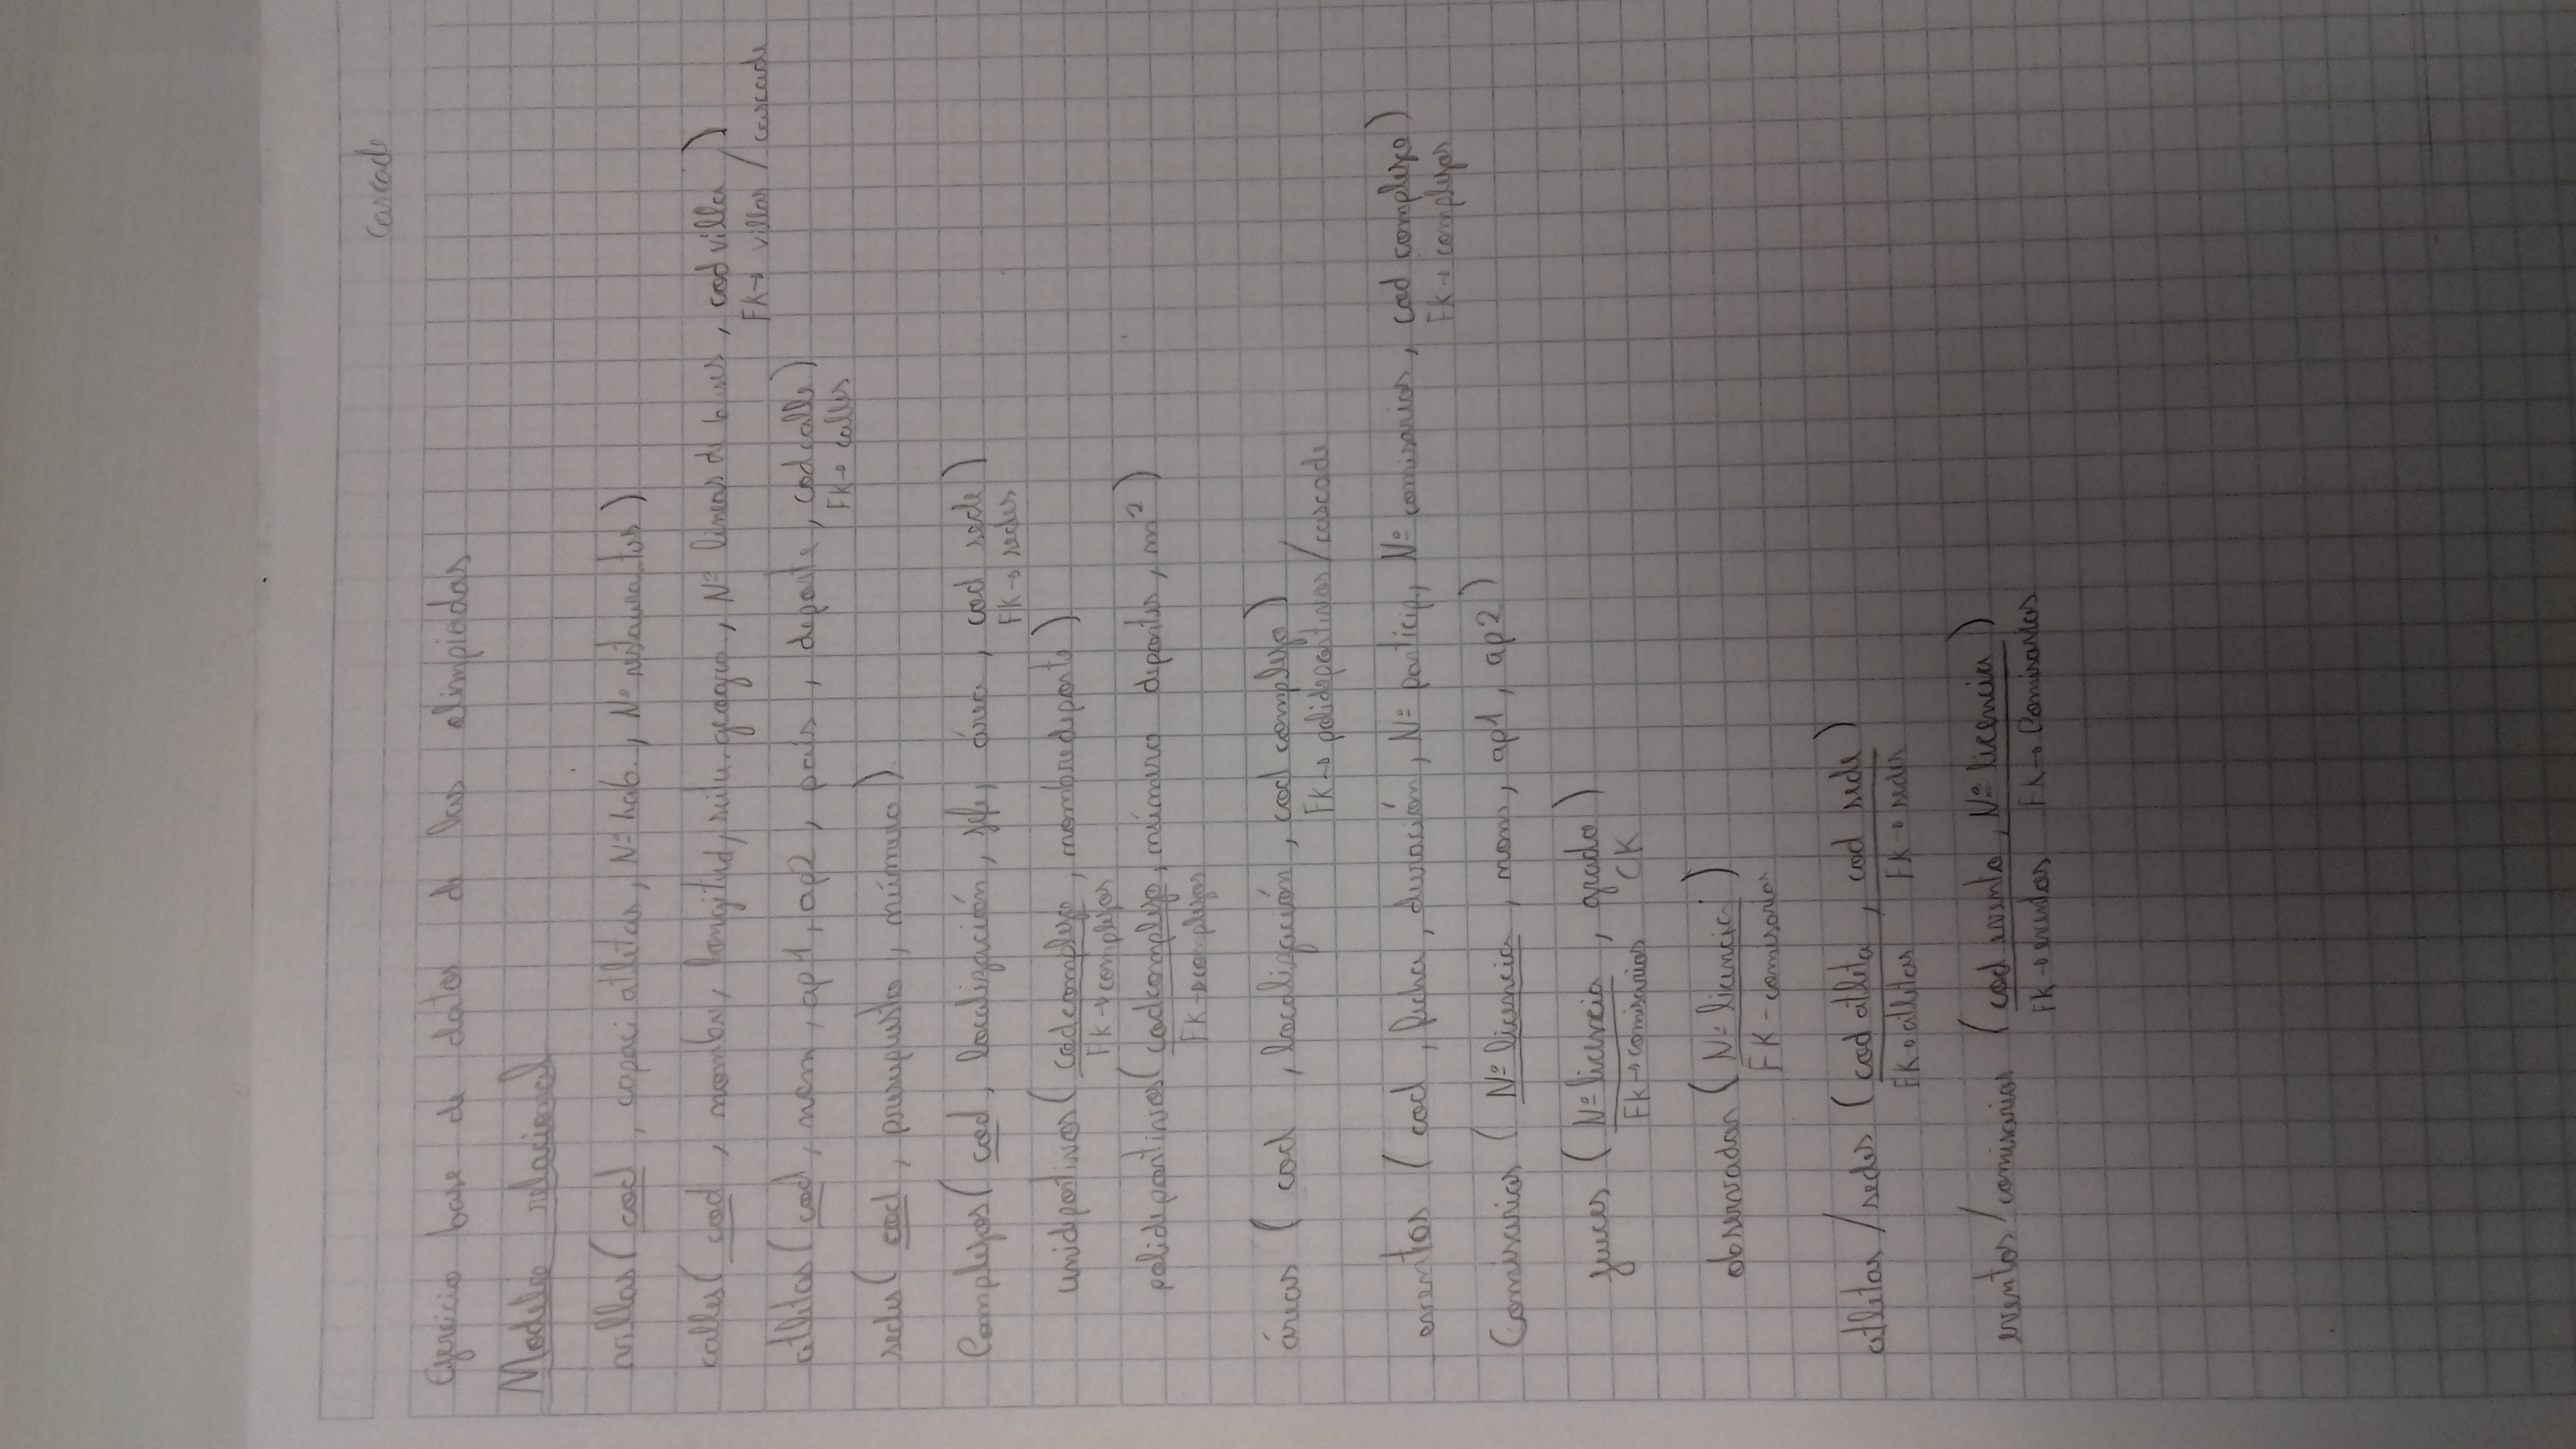 Cascade
Ejercicio base de datos de las olimpiadas
Modelo relacional
villas (cod, capaci atletas, Nº hab., Nº restaurantes)
calles (cod, nombre, longitud, situ. geogra, Nº lineas de buses, cod villa)
FK→ villas / cascade
atletas (cod, nom, ap1, ap2, país, deporte, cod calle)
FK→ calles
sedes (cod, presupuesto, número)
Complejos (cod, localización, jefe, área, cod sede)
FK→ sedes
unideportivos (codcomplejo, nombredeporte)
FK→complejos
polideportivos (codcomplejo, número deportes, m²)
FK→complejos
áreas (cod, localización, cod complejo)
FK→ polideportivos / cascade
eventos (cod, fecha, duración, Nº particip, Nº comisarios, cod complejo)
FK→ complejos
Comisarios (Nº licencia, nom, ap1, ap2)
jueces (Nº licencia, grado)
FK→comisarios CK
observador (Nº licencia)
FK - comisarios
atletas / sedes (cod atleta, cod sede)
FK→atletas FK→ sedes
eventos / comisarios (cod evento, Nº licencia)
FK→eventos FK→ Comisarios